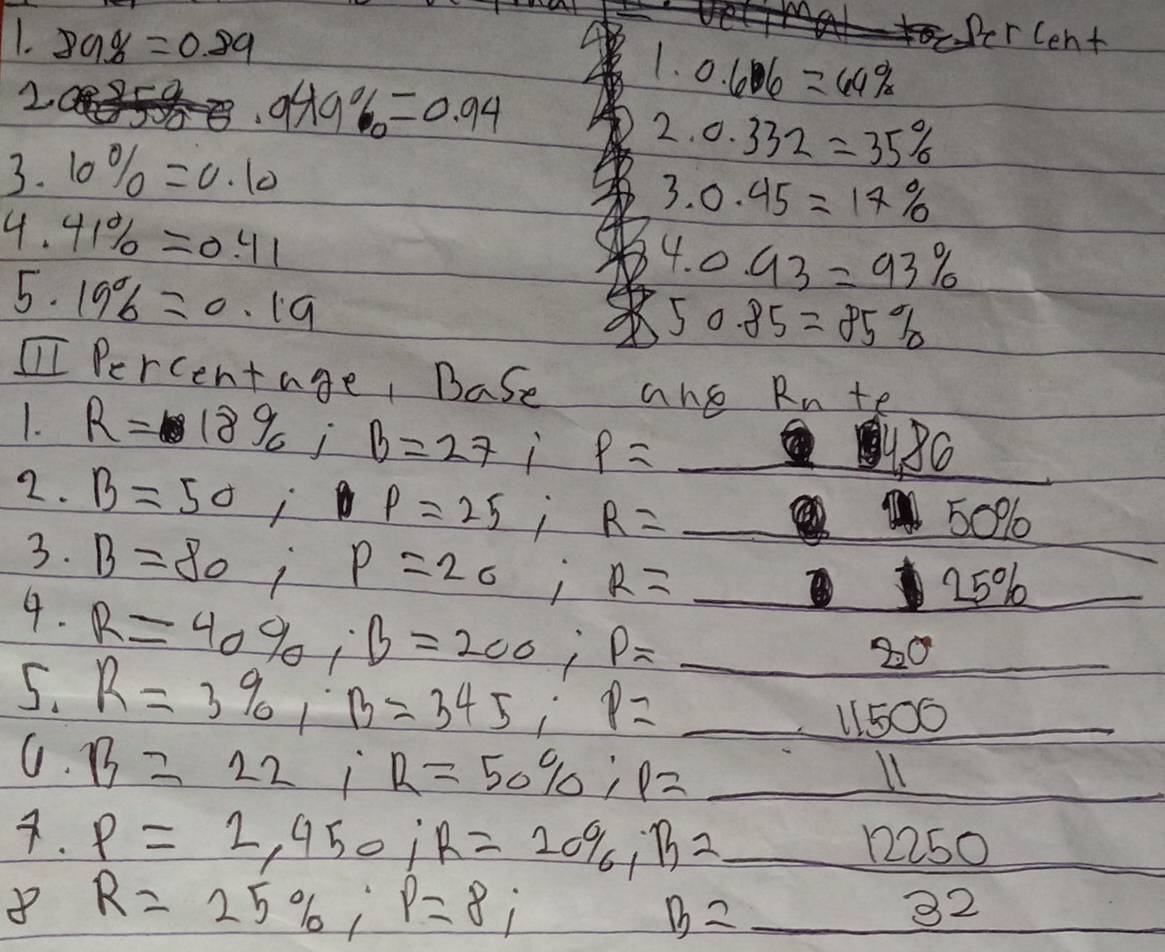 Percent
1. 89% = 0.89
2. .949% = 0.94
3. 10% = 0.10
4. 41% = 0.41
5. 19% = 0.19
1. 0.616 = 69%
2. 0.332 = 35%
3. 0.45 = 17%
4. 0.93 = 93%
5 0.85 = 85%
III Percentage, Base ang Rate
1. R = 18% ; B = 27 ; P = 4,86
2. B = 50 ; P = 25 ; R = 50%
3. B = 80 ; P = 20 ; R = 25%
4. R = 40% ; B = 200 ; P = 20
5. R = 3% ; B = 345 ; P = 11500
6. B = 22 ; R = 50% ; P = 11
7. P = 2,450 ; R = 20% ; B = 12250
8 R = 25% ; P = 8 ; B = 32